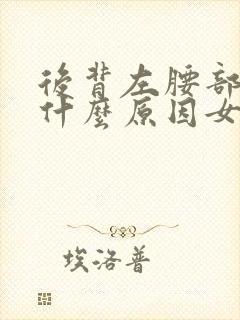 後背左腰部
什麼原因女
埃洛普